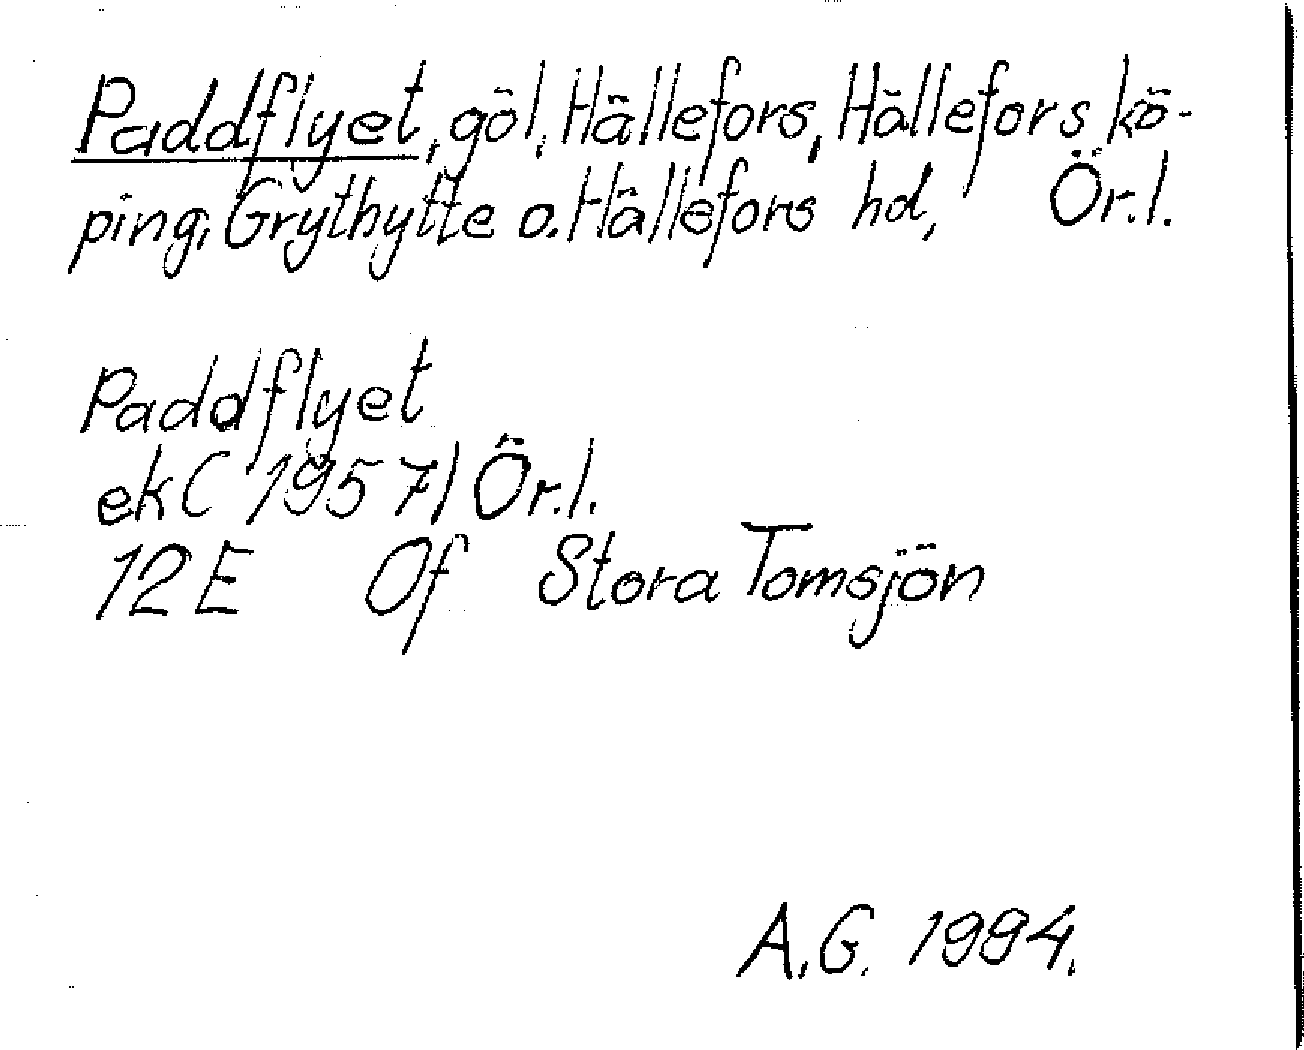 Paddflyet, göl, Hällefors, Hällefors kö-
ping, Grythytte o. Hällefors hd, Ör.l.
Paddflyet
ek (1957) Ör.l.
12E Of Stora Tomsjön
A.G. 1994.